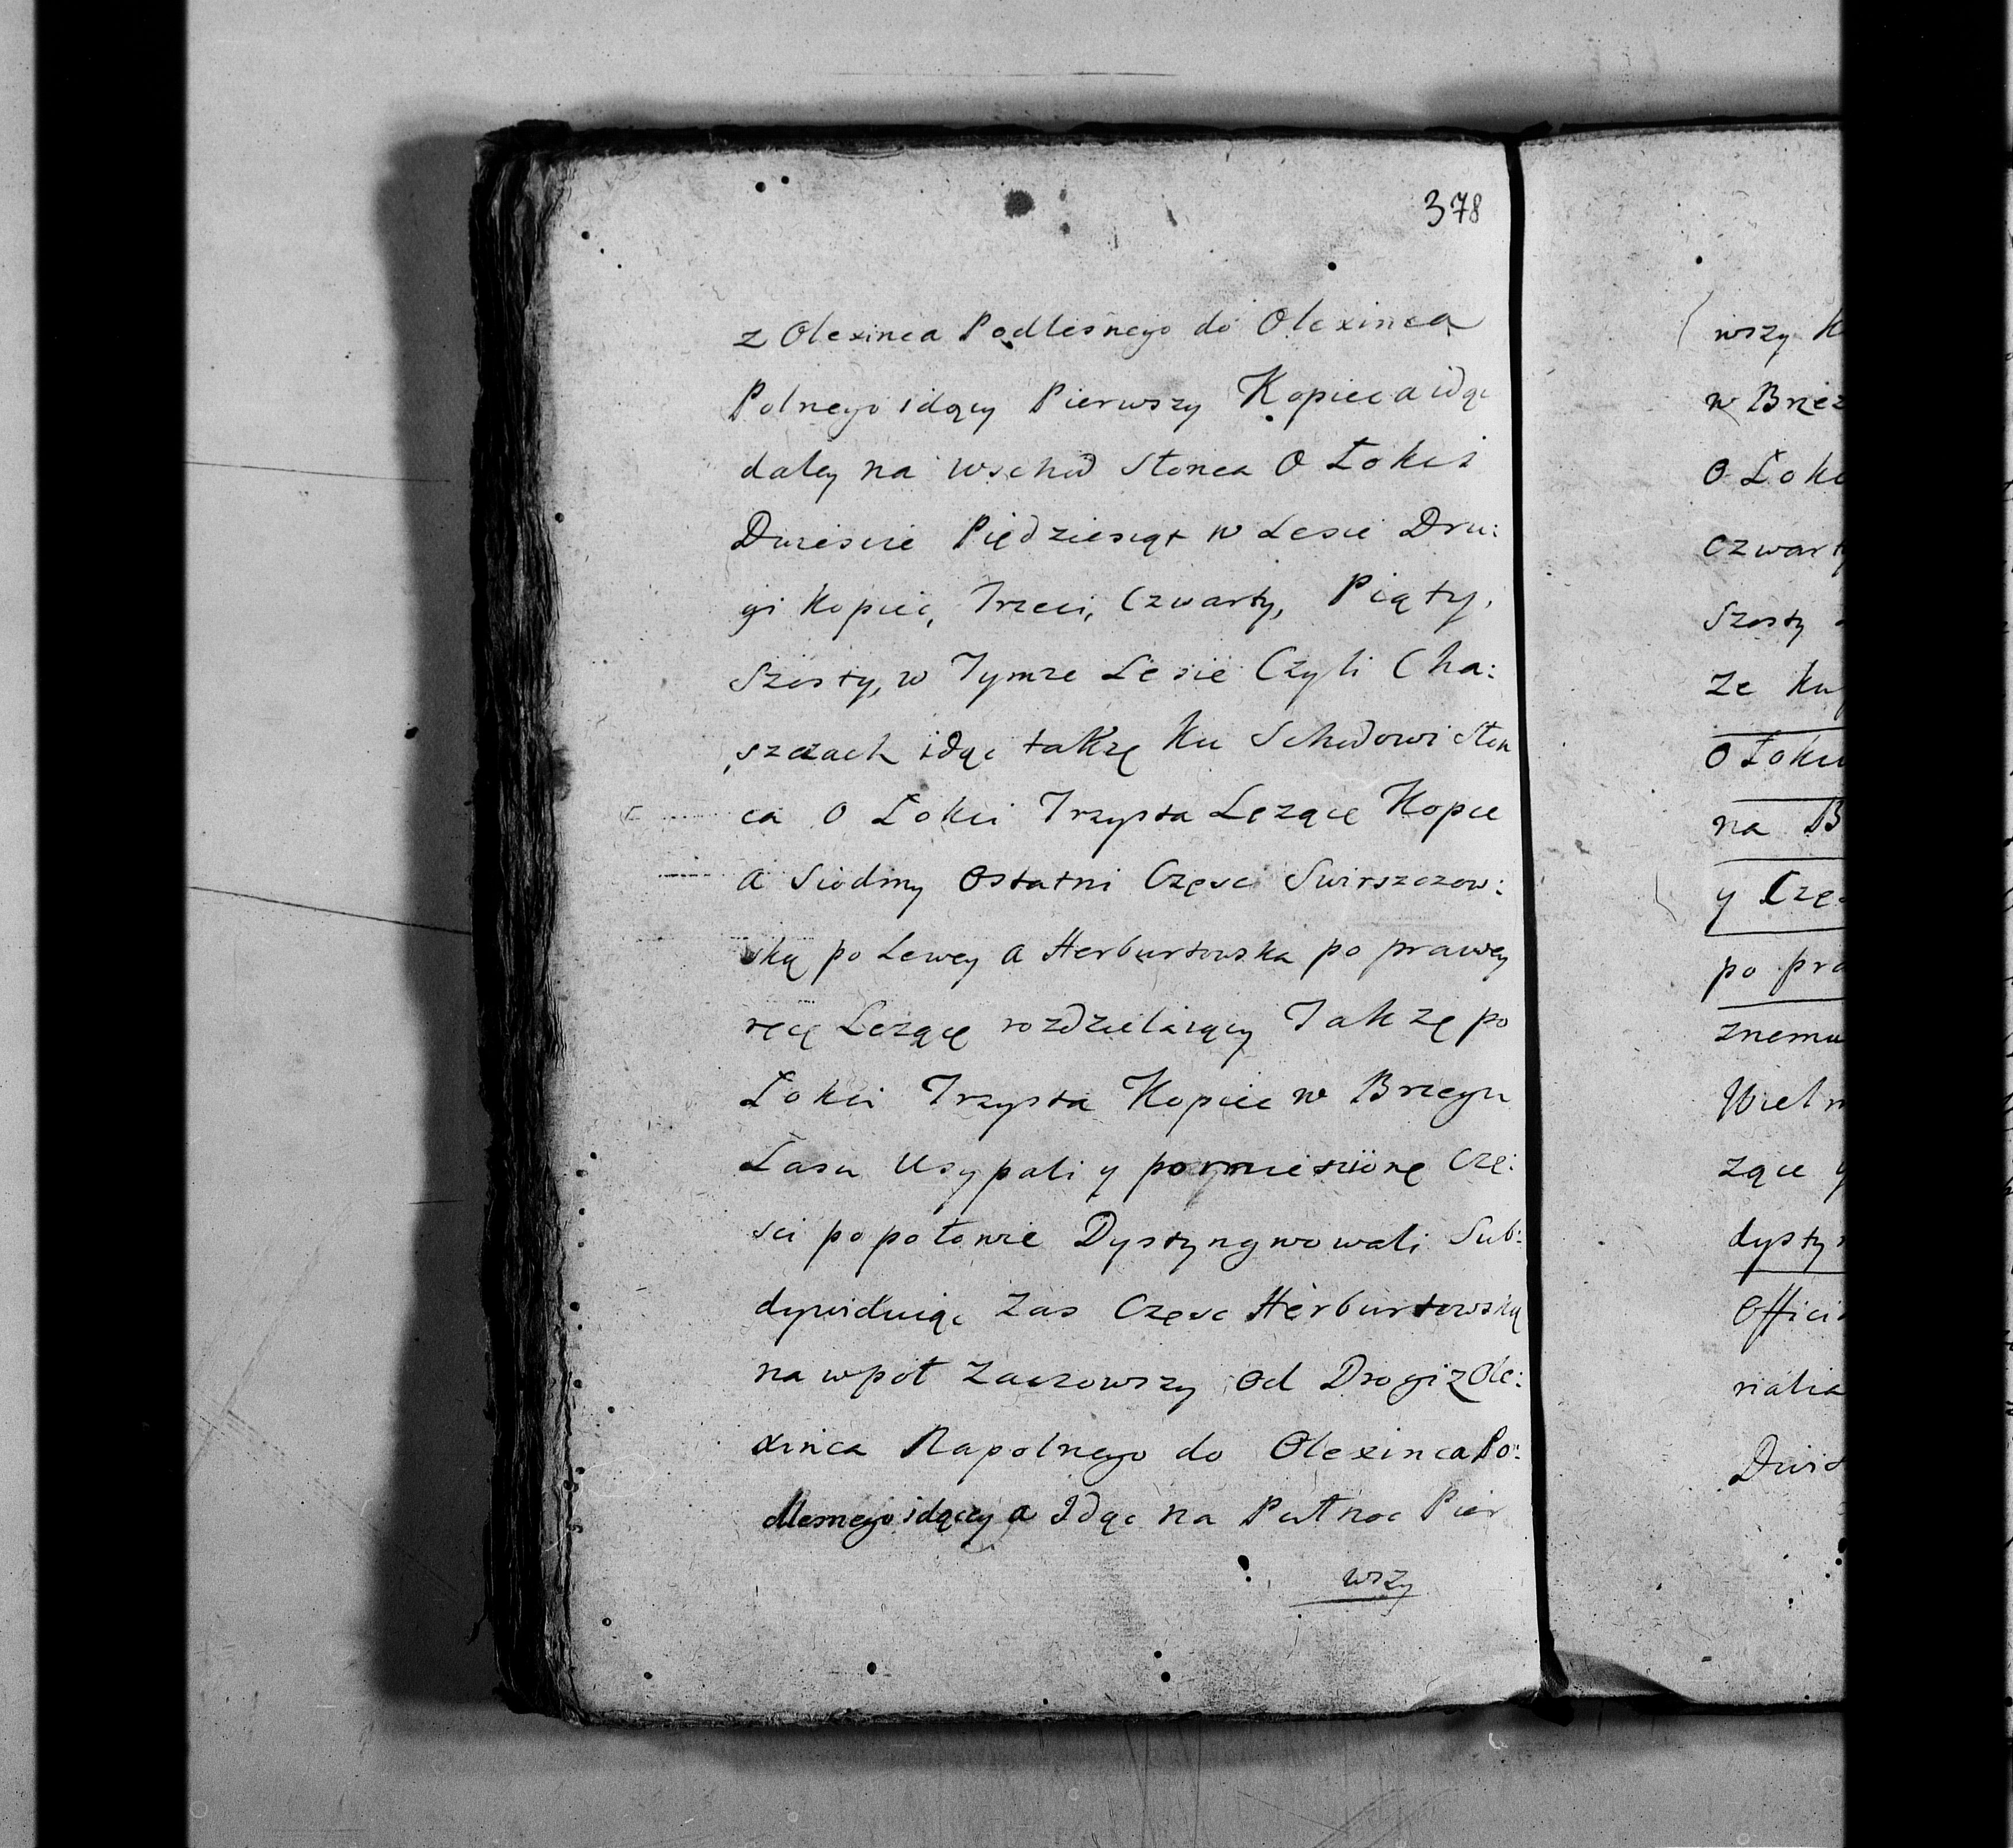 378
z Olexinca Podlesnego do Olexinca
Polnego idący Pierwszy Kopiec a idąc
daley na wschod Słonca O Łokci
Dwiescie PięDziesiąt w Lesie Dru:
gi Kopiec, Trzeci, Czwarty, Piąty,
Szosty, w Tymze Lesie Czyli Cha:
szczach idąc takzę Ku Schodowi Słon
ca O Łokci Trzysta Lezącę Kopce
A Siodmy Ostatni Częsci Swirszczow:
ską po Lewey A Herburtowska po prawey
ręcę Lezącę rozdzielaiący Takzę po
Łokci Trzysta Kopiec w Brzegu
Lasu Usypali y pomienionę Czę:
sci popołowie Dystyngwowali Sub:
dywiduiąc Zas Częsc Herburtowską
na wpoł Zaczowszy Od Drogi z Ole:
xinca Napolnego do Olexinca Po:
dlesnego idącey a Idąc na Pułnoc Pier
wszy
wszy
O
czwart
Szosty
ze
na B
y Czę
po
znemu
Wiel
zące